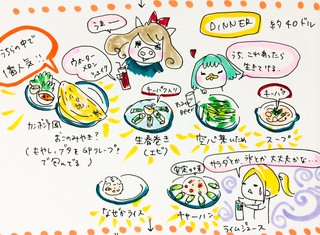 うちらの中で
1番人気!!
うまー
ウォーター
メロン
シェイク
DINNER
約40ドル
うち、これあったら
生きてける。
カンボジア風
おこのみやき?
(もやし・ブタをGPクレープ
で包んでる)
キーパクス入り
生春巻き
(エビ)
空心菜いため
キーパク
スープ
なぜかライス
安定の味
チャーハン
サラダとか、氷とか大丈夫かな…
ライムジュース